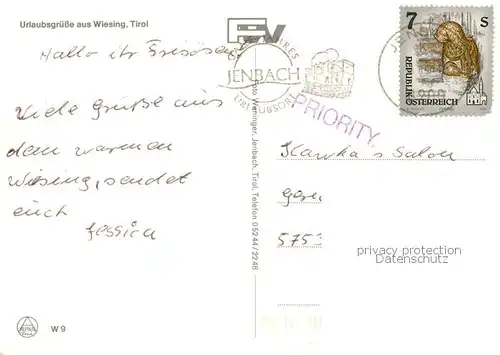 Urlaubsgrüße aus Wiesing, Tirol
Hallo ihr Friseösen!
Viele Grüße aus
dem warmen
Wiesing, sendet
euch
Jessica
JENBACH
URLAUBSORT
PRIORITY
7 S
REPUBLIK
ÖSTERREICH
Foto Weninger, Jenbach, Tirol, Telefon 05244/2246
Hawka's Salon
575
privacy protection
Datenschutz
W 9